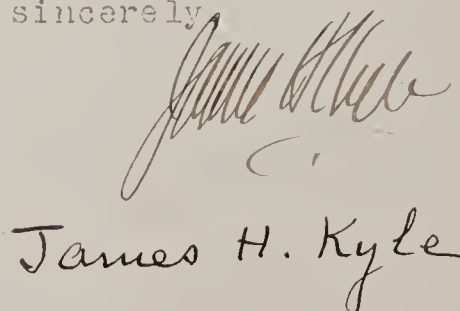 sincerely
James H Kyle
James H. Kyle